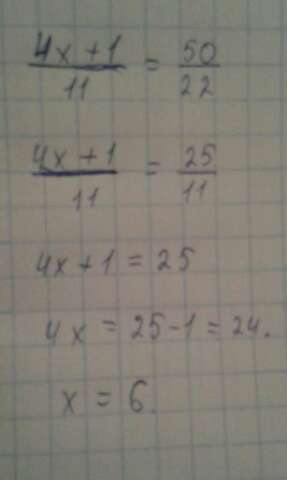 4x + 1 / 11 = 50 / 22
4x + 1 / 11 = 25 / 11
4x + 1 = 25
4x = 25 - 1 = 24.
x = 6.